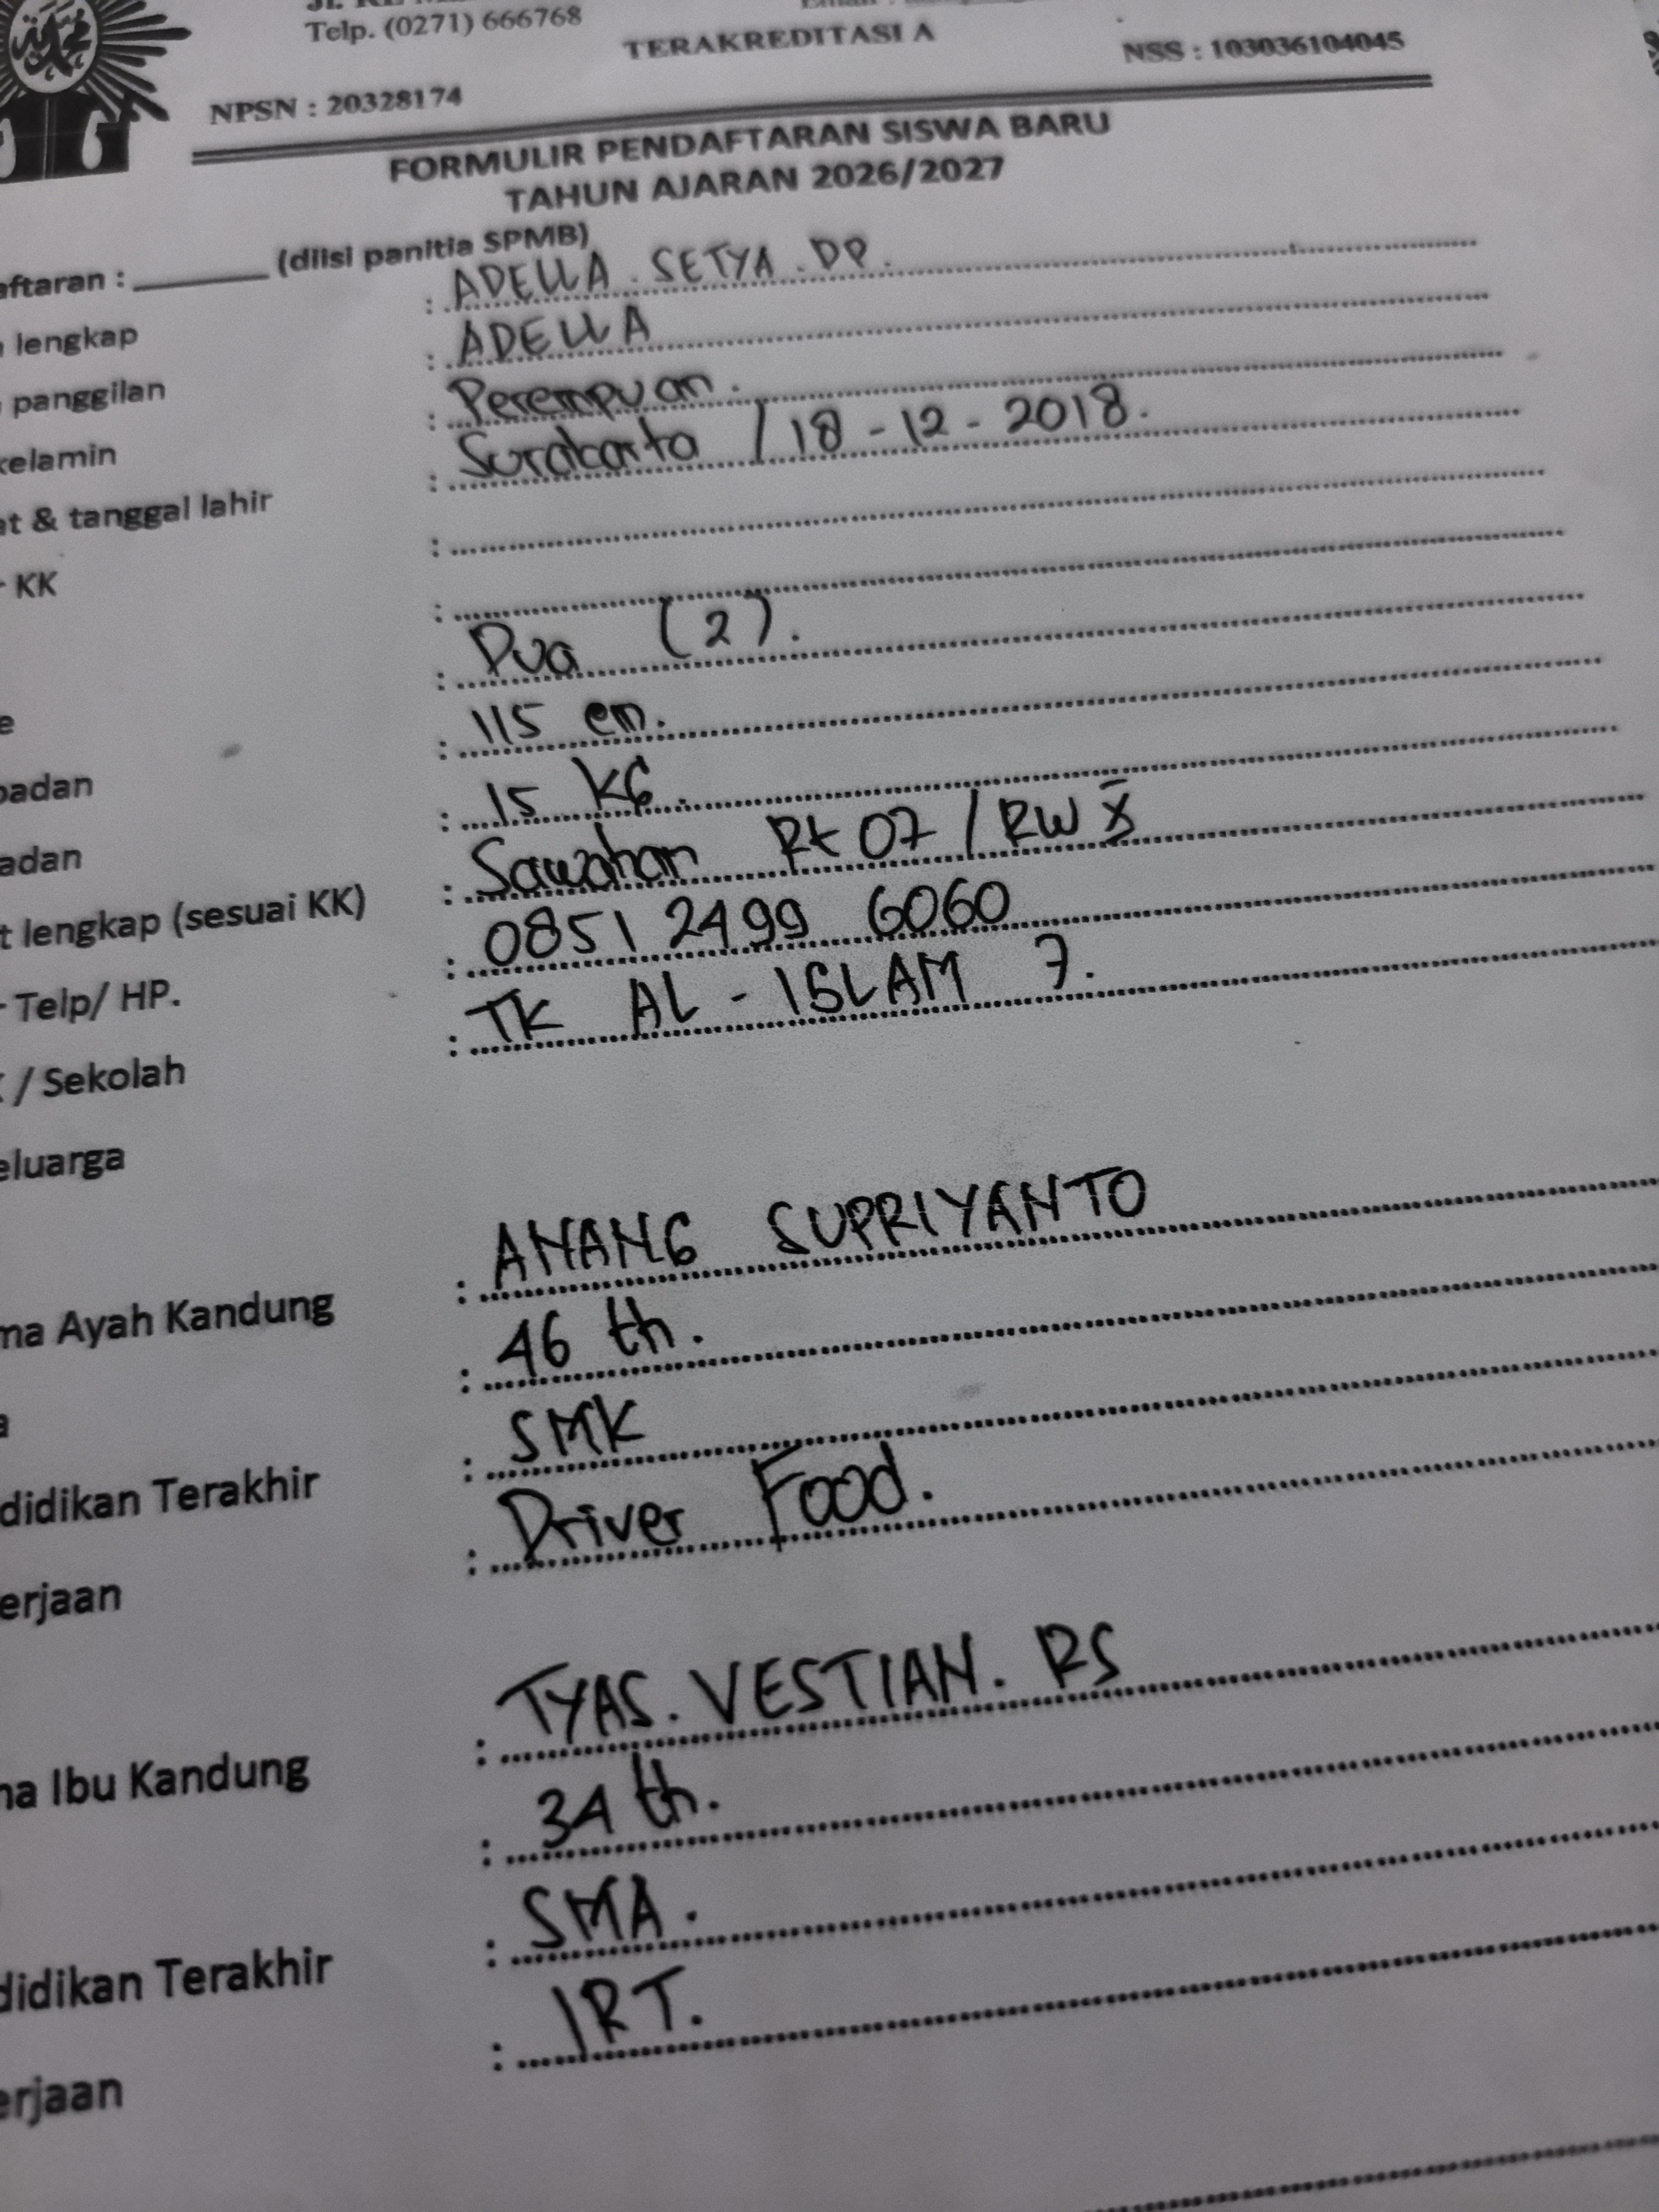 Telp. (0271) 666768
TERAKREDITASI A
NSS : 103036104045
NPSN : 20328174
FORMULIR PENDAFTARAN SISWA BARU
TAHUN AJARAN 2026/2027
aftaran : ______ (diisi panitia SPMB)
lengkap : ADELLA . SETYA . DP.
panggilan : ADELLA
kelamin : Perempuan .
at & tanggal lahir : Surakarta / 18 - 12 - 2018.
KK :
:
e : Dua (2).
badan : 115 cm.
adan : 15 KG.
t lengkap (sesuai KK) : Sawahan Rt 07 / RW X
Telp/ HP. : 0851 2499 6060
/ Sekolah : TK AL - ISLAM 7.
eluarga
ma Ayah Kandung : ANANG SUPRIYANTO
a : 46 th.
didikan Terakhir : SMK
erjaan : Driver Food.
na Ibu Kandung : TYAS. VESTIAN. RS
: 34 th.
didikan Terakhir : SMA.
erjaan : IRT.